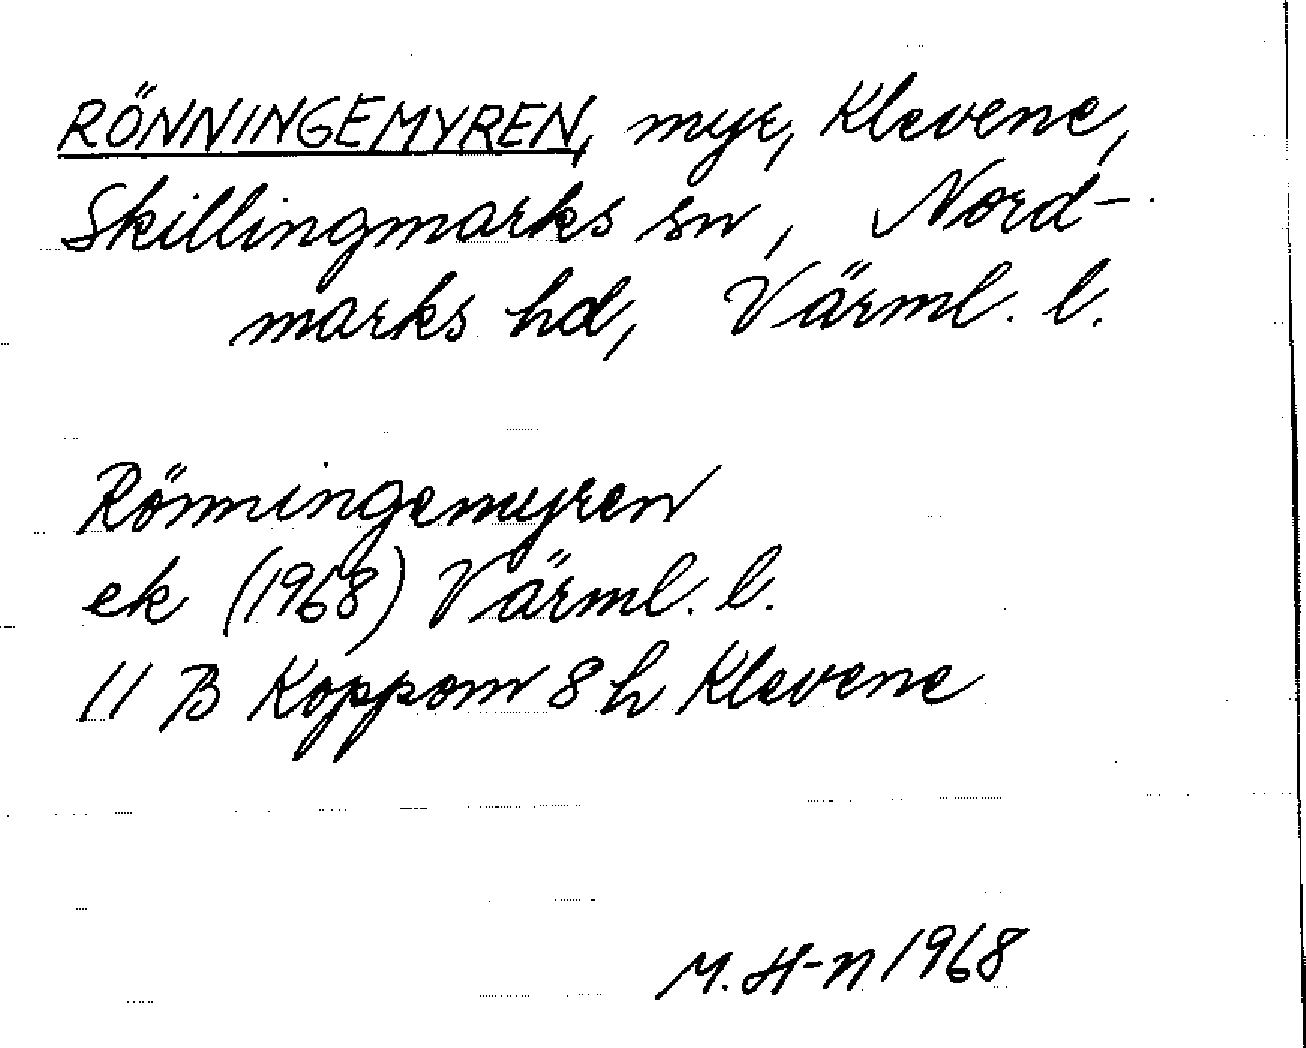 RÖNNINGEMYREN, myr, Klevene,
Skillingmarks sn, Nord-
marks hd, Värml. l.
Rönningemyren
ek (1968) Värml. l.
11 B Koppom 8 h Klevene
M. H-n 1968